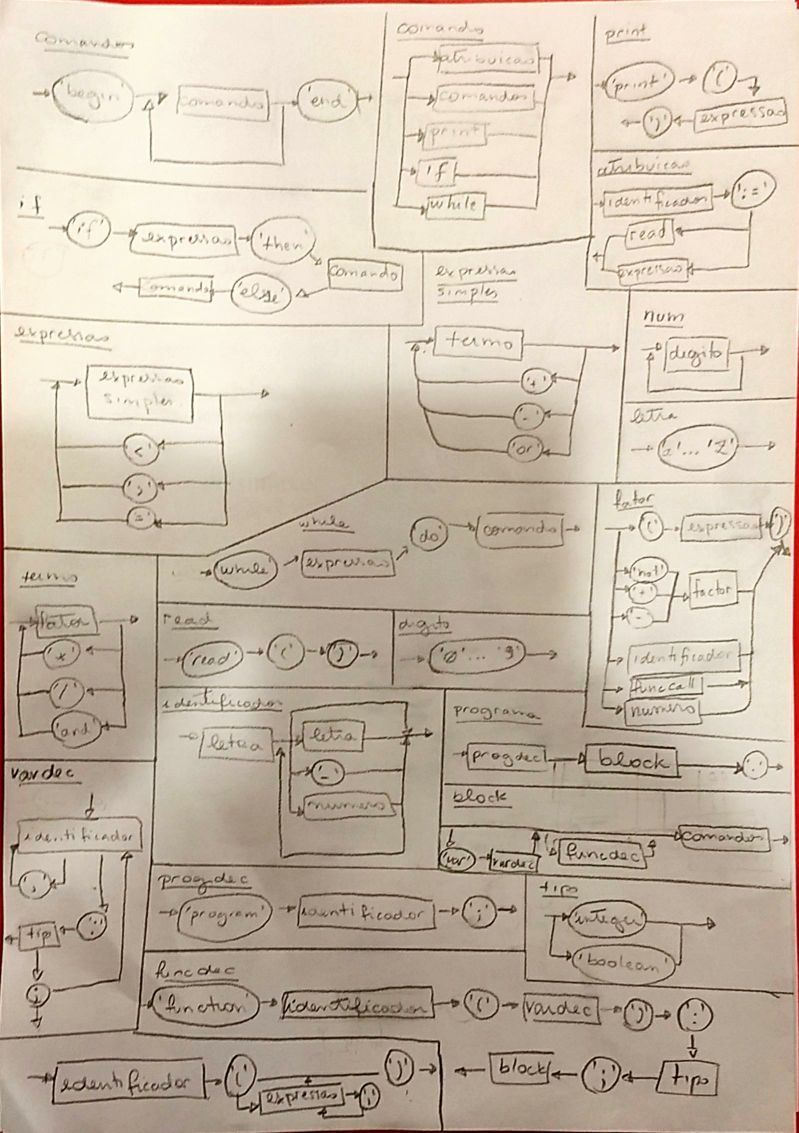 comandos
'begin'
comando
'end'
comando
atribuicao
comandos
print
if
while
print
'print'
'('
expressao
')'
atribuicao
identificador
':='
read
expressao
if
'if'
expressao
'then'
comando
'else'
comando
expressao
simples
termo
'+'
'-'
'or'
num
digito
letra
expressao
expressao
simples
'<'
'='
while
'while'
expressao
'do'
comando
fator
'('
expressao
')'
'not'
'+'
'-'
factor
identificador
funccall
numero
termo
fator
'*'
'/'
'and'
read
'read'
'('
')'
digito
'0' ... '9'
identificador
letra
letra
'_'
numero
programa
progdec
block
'.'
block
'var'
vardec
funcdec
comandos
vardec
identificador
','
':'
tipo
;
progdec
'program'
identificador
';'
tipo
'integer'
'boolean'
funcdec
'function'
identificador
'('
vardec
')'
':'
tipo
';'
block
identificador
'('
expressao
')'